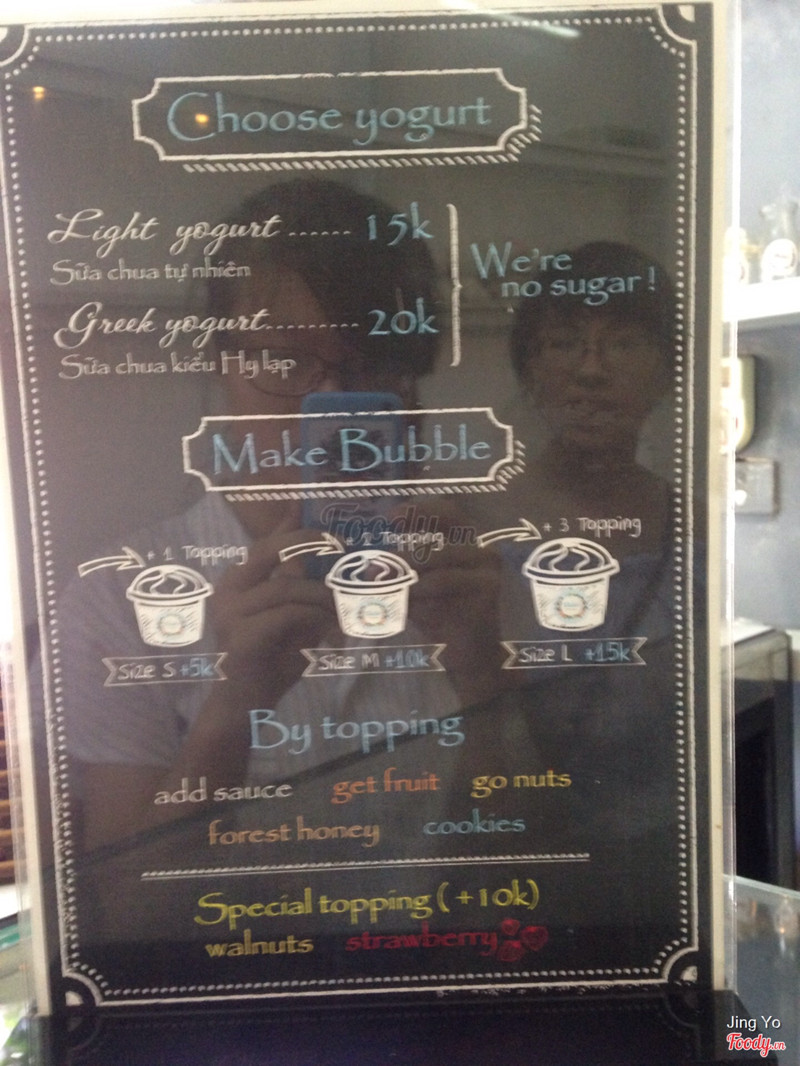 Choose yogurt
Light yogurt ...... 15k
Sữa chua tự nhiên
Greek yogurt......... 20k
Sữa chua kiểu Hy lạp
We're
no sugar!
Make Bubble
Foody.vn
+ 1 Topping
+ 2 Topping
+ 3 Topping
Size S +5k
Size M +10k
Size L +15k
By topping
add sauce get fruit go nuts
forest honey cookies
Special topping (+10k)
walnuts strawberry
Jing Yo
Foody.vn